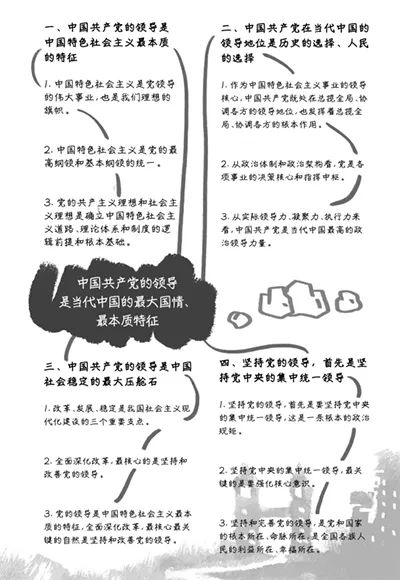 一、中国共产党的领导是
中国特色社会主义最本质
的特征
1. 中国特色社会主义是党领导
的伟大事业，也是我们理想的
旗帜。
2. 中国特色社会主义是党的最
高纲领和基本纲领的统一。
3. 党的共产主义理想和社会主
义理想是确立中国特色社会主
义道路、理论体系和制度的逻
辑前提和根本基础。
二、中国共产党在当代中国的
领导地位是历史的选择、人民
的选择
1. 作为中国特色社会主义事业的领导
核心，中国共产党既处在总揽全局、协
调各方的领导地位，也发挥着总揽全
局、协调各方的根本作用。
2. 从政治体制和政治架构看，党是各
项事业的决策核心和指挥中枢。
3. 从实际领导力、凝聚力、执行力来
看，中国共产党是当代中国最高的政
治领导力量。
中国共产党的领导
是当代中国的最大国情、
最本质特征
三、中国共产党的领导是中国
社会稳定的最大压舱石
1. 改革、发展、稳定是我国社会主义现
代化建设的三个重要支点。
2. 全面深化改革，最核心的是坚持和
改善党的领导。
3. 党的领导是中国特色社会主义最本
质的特征，全面深化改革，最核心最关
键的自然是坚持和改善党的领导。
四、坚持党的领导，首先是坚
持党中央的集中统一领导
1. 坚持党的领导，首先是要坚持党中央
的集中统一领导，这是一条根本的政治
规矩。
2. 坚持党中央的集中统一领导，最关
键的是要强化核心意识。
3. 坚持和完善党的领导，是党和国家
的根本所在、命脉所在，是全国各族人
民的利益所在、幸福所在。